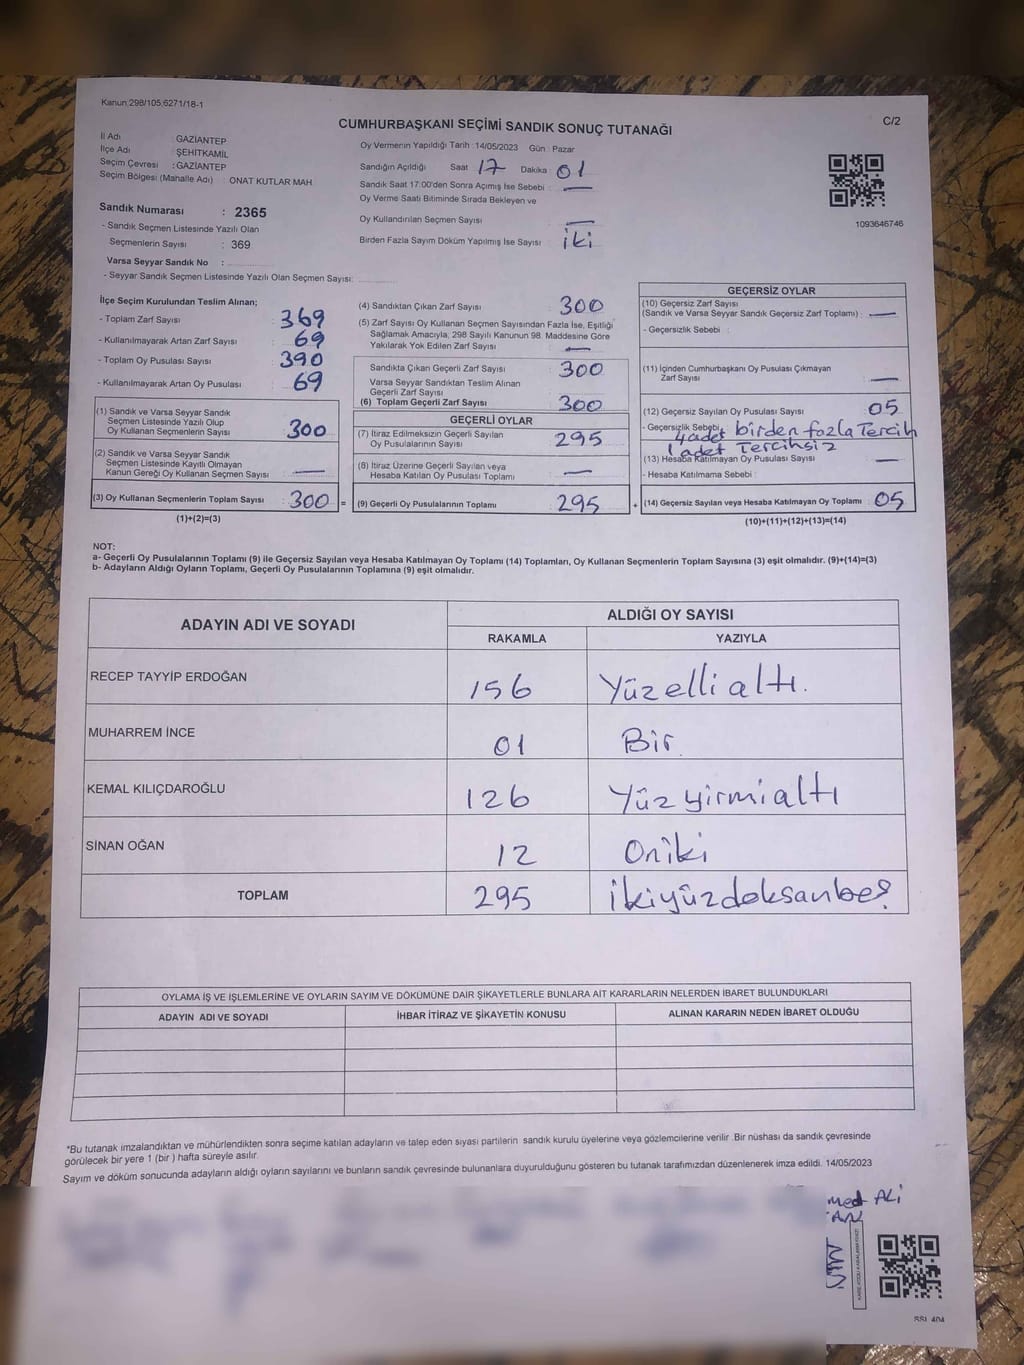 Kanun 298/105,6271/18-1
C/2
CUMHURBAŞKANI SEÇİMİ SANDIK SONUÇ TUTANAĞI
İl Adı : GAZİANTEP
İlçe Adı : ŞEHİTKAMİL
Seçim Çevresi : GAZİANTEP
Seçim Bölgesi (Mahalle Adı) : ONAT KUTLAR MAH.
Oy Vermenin Yapıldığı Tarih : 14/05/2023 Gün : Pazar
Sandığın Açıldığı Saat 17 Dakika : 01
Sandık Saat 17:00'den Sonra Açımış İse Sebebi : —
Oy Verme Saati Bitiminde Sırada Bekleyen ve
Oy Kullandırılan Seçmen Sayısı —
Birden Fazla Sayım Döküm Yapılmış İse Sayısı : iki
1093646746
Sandık Numarası : 2365
- Sandık Seçmen Listesinde Yazılı Olan
Seçmenlerin Sayısı : 369
Varsa Seyyar Sandık No :
- Seyyar Sandık Seçmen Listesinde Yazılı Olan Seçmen Sayısı:
İlçe Seçim Kurulundan Teslim Alınan;
- Toplam Zarf Sayısı : 369
- Kullanılmayarak Artan Zarf Sayısı : 69
- Toplam Oy Pusulası Sayısı : 390
- Kullanılmayarak Artan Oy Pusulası : 69
(1) Sandık ve Varsa Seyyar Sandık
Seçmen Listesinde Yazılı Olup
Oy Kullanan Seçmenlerin Sayısı : 300
(2) Sandık ve Varsa Seyyar Sandık
Seçmen Listesinde Kayıtlı Olmayan
Kanun Gereği Oy Kullanan Seçmen Sayısı : —
(3) Oy Kullanan Seçmenlerin Toplam Sayısı : 300 =
(1)+(2)=(3)
(4) Sandıktan Çıkan Zarf Sayısı : 300
(5) Zarf Sayısı Oy Kullanan Seçmen Sayısından Fazla İse, Eşitliği
Sağlamak Amacıyla, 298 Sayılı Kanunun 98. Maddesine Göre
Yakılarak Yok Edilen Zarf Sayısı : —
Sandıkta Çıkan Geçerli Zarf Sayısı : 300
Varsa Seyyar Sandıktan Teslim Alınan
Geçerli Zarf Sayısı :
(6) Toplam Geçerli Zarf Sayısı : 300
GEÇERLİ OYLAR
(7) İtiraz Edilmeksizin Geçerli Sayılan
Oy Pusulalarının Sayısı : 295
(8) İtiraz Üzerine Geçerli Sayılan veya
Hesaba Katılan Oy Pusulası Toplamı : —
(9) Geçerli Oy Pusulalarının Toplamı : 295 +
GEÇERSİZ OYLAR
(10) Geçersiz Zarf Sayısı
(Sandık ve Varsa Seyyar Sandık Geçersiz Zarf Toplamı) : —
- Geçersizlik Sebebi :
(11) İçinden Cumhurbaşkanı Oy Pusulası Çıkmayan
Zarf Sayısı : —
(12) Geçersiz Sayılan Oy Pusulası Sayısı : 05
- Geçersizlik Sebebi : 4 adet birden fazla Tercih
1 adet Tercihsiz
(13) Hesaba Katılmayan Oy Pusulası Sayısı : —
- Hesaba Katılmama Sebebi :
(14) Geçersiz Sayılan veya Hesaba Katılmayan Oy Toplamı : 05
(10)+(11)+(12)+(13)=(14)
NOT:
a- Geçerli Oy Pusulalarının Toplamı (9) ile Geçersiz Sayılan veya Hesaba Katılmayan Oy Toplamı (14) Toplamları, Oy Kullanan Seçmenlerin Toplam Sayısına (3) eşit olmalıdır. (9)+(14)=(3)
b- Adayların Aldığı Oyların Toplamı, Geçerli Oy Pusulalarının Toplamına (9) eşit olmalıdır.
ADAYIN ADI VE SOYADI
ALDIĞI OY SAYISI
RAKAMLA YAZIYLA
RECEP TAYYİP ERDOĞAN 156 Yüzellialtı.
MUHARREM İNCE 01 Bir.
KEMAL KILIÇDAROĞLU 126 Yüzyirmialtı
SİNAN OĞAN 12 Oniki
TOPLAM 295 ikiyüzdoksanbeş
OYLAMA İŞ VE İŞLEMLERİNE VE OYLARIN SAYIM VE DÖKÜMÜNE DAİR ŞİKAYETLERLE BUNLARA AİT KARARLARIN NELERDEN İBARET BULUNDUKLARI
ADAYIN ADI VE SOYADI İHBAR İTİRAZ VE ŞİKAYETİN KONUSU ALINAN KARARIN NEDEN İBARET OLDUĞU
*Bu tutanak imzalandıktan ve mühürlendikten sonra seçime katılan adayların ve talep eden siyasi partilerin sandık kurulu üyelerine veya gözlemcilerine verilir. Bir nüshası da sandık çevresinde
görülecek bir yere 1 (bir ) hafta süreyle asılır.
Sayım ve döküm sonucunda adayların aldığı oyların sayılarını ve bunların sandık çevresinde bulunanlara duyurulduğunu gösteren bu tutanak tarafımızdan düzenlenerek imza edildi. 14/05/2023
med ALİ